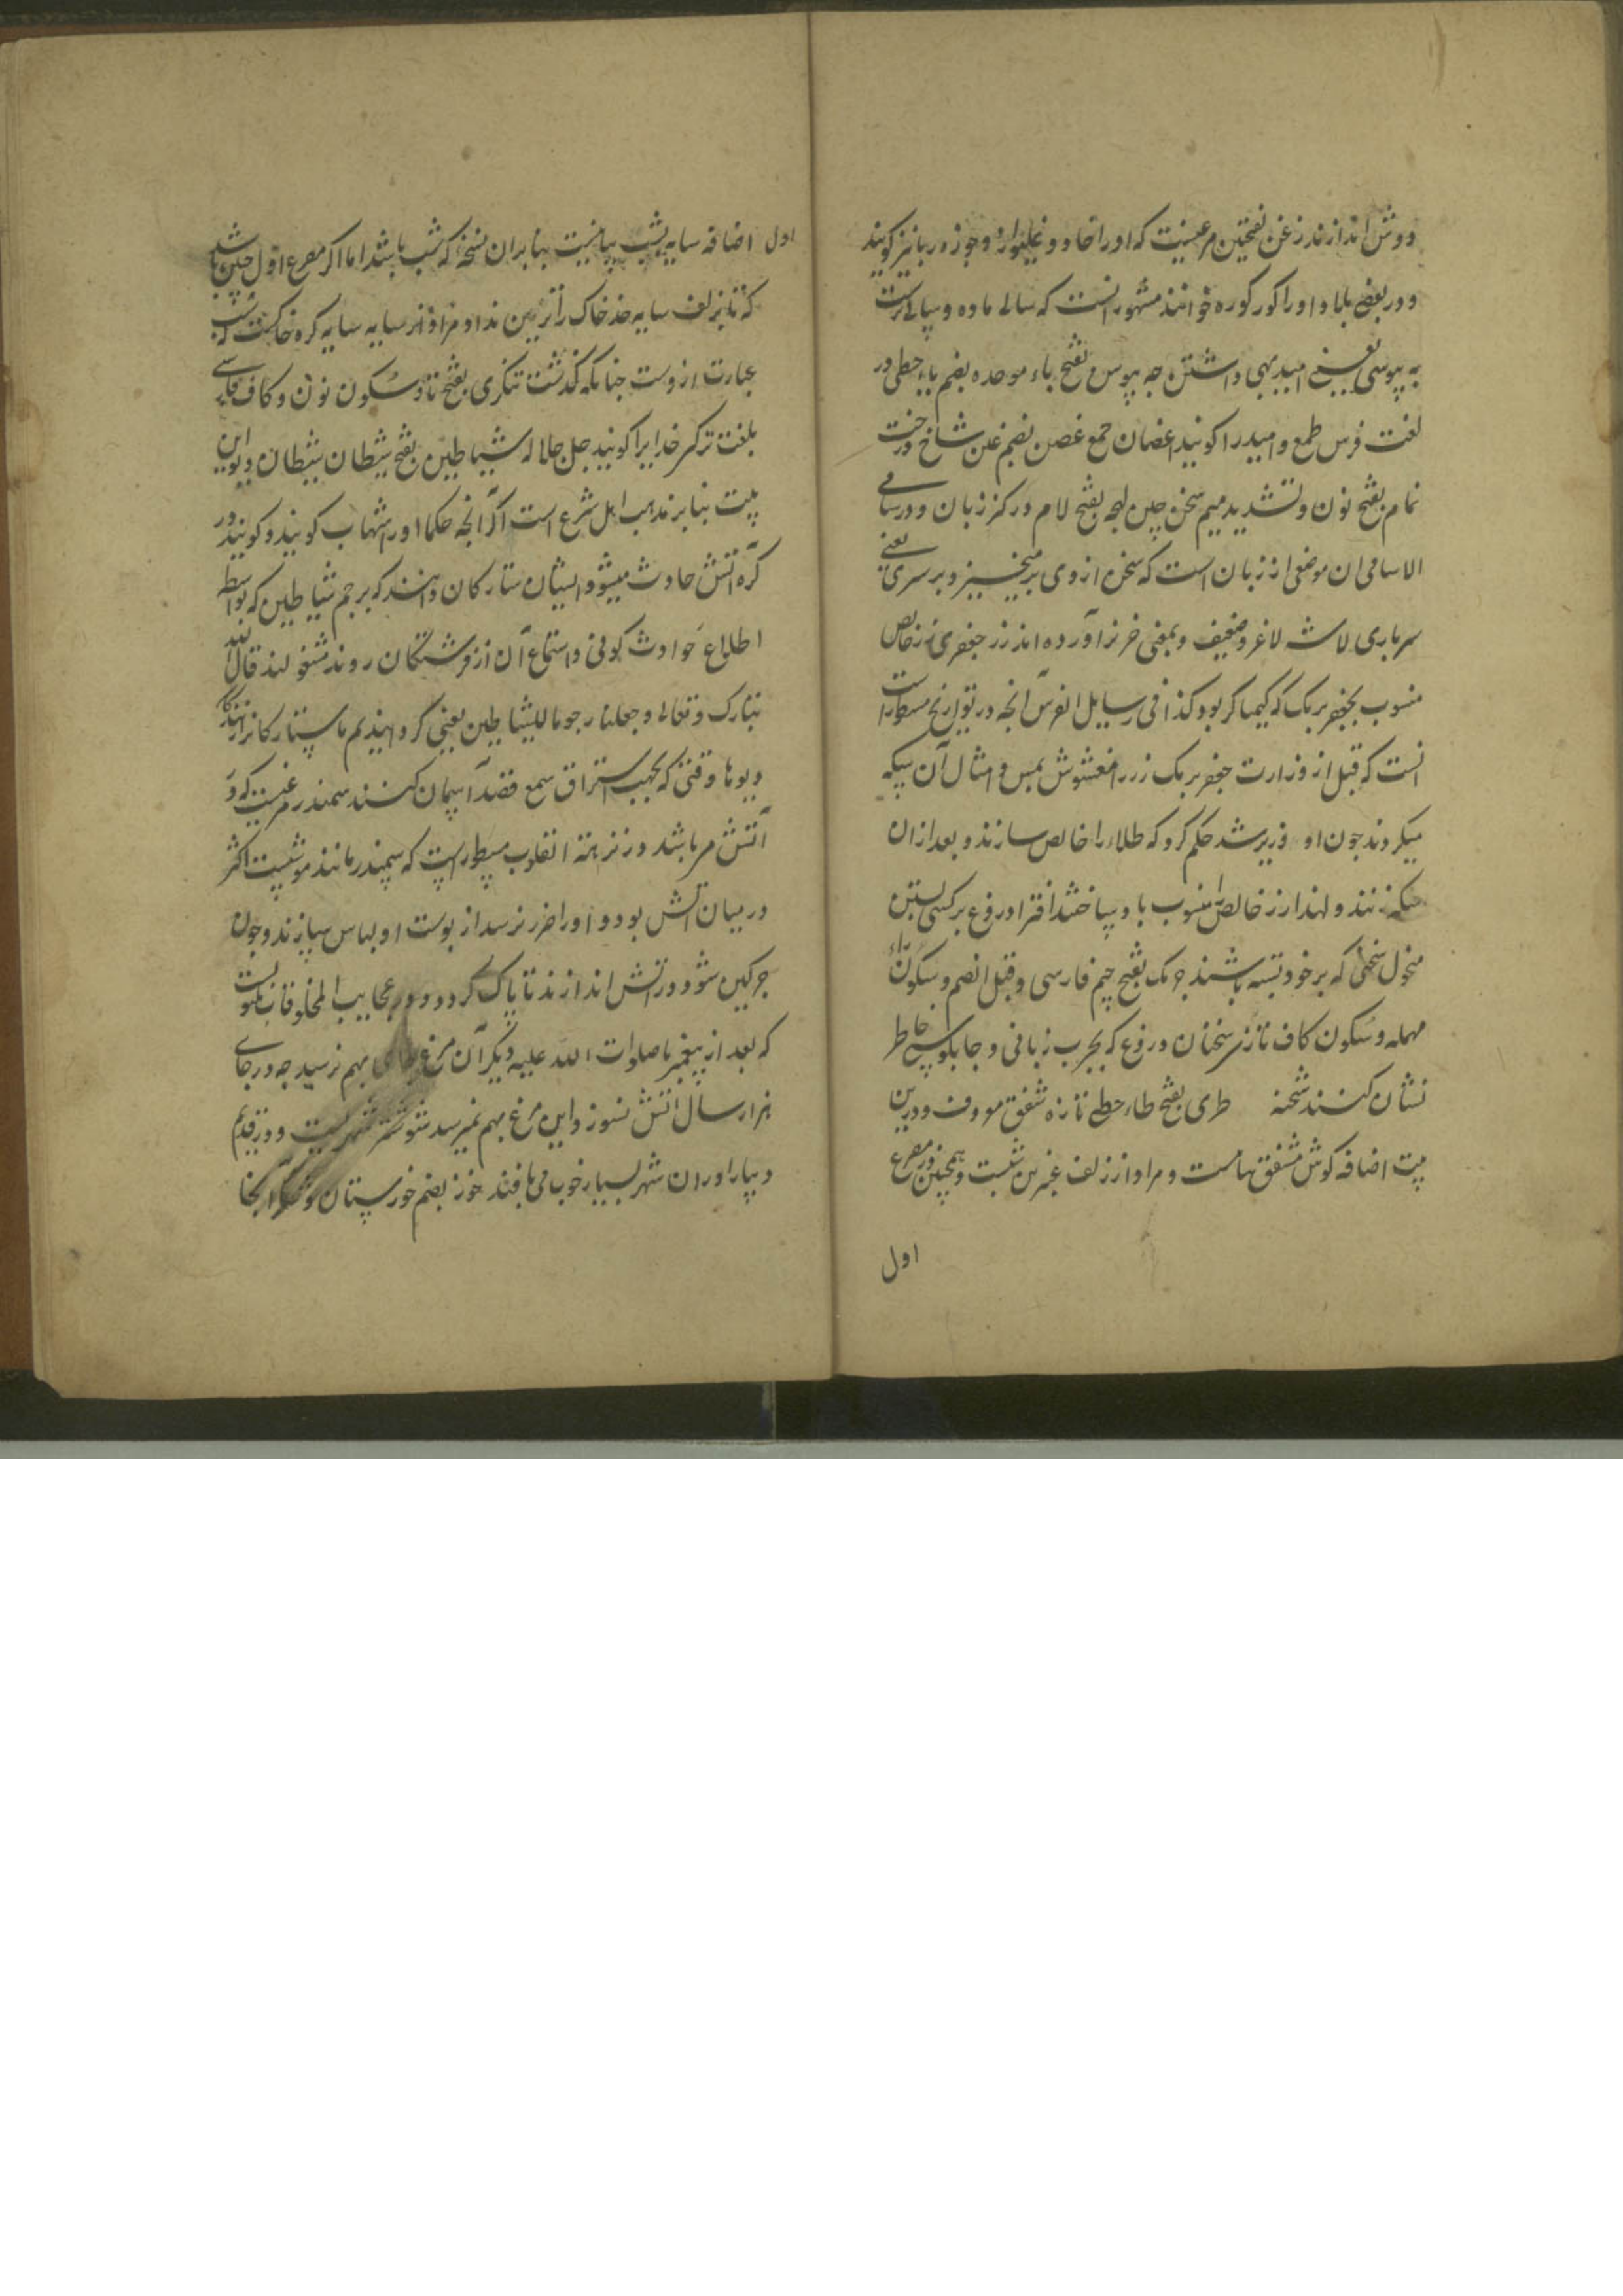 دوش اندازند زغن بفتحتین مرغیست که اورا خاد و غلیواژ و جوزه ربا نیز کویند
و در بعضی بلاد اورا کورکوره خوانند مشهور انست که سالی ماده و سالی نرست
به پیوسی یعنی امید بهی داشتن جه پیوس بفتح باء موحده بضم یاء حطی در
لغت فرس طمع و امید را کویند اغصان جمع غصن بضم غین شاخ درخت
نمام بفتح نون و تشدید میم سخن چین لهجه بفتح لام در کنز زبان و در سامی
الاسامی ان موضعی از زبان است که سخن از وی بر میخیزد بر سری یعنی
سرباری لاشه لاغر و ضعیف و بمعنی خر نیز آورده اند زر جعفری زر خالص
منسوب بجعفر برمک که کیمیاکر بود کذا فی رسایل الفرس آنجه در تواریخ مسطور است
انست که قبل از وزارت جعفر برمک زر را مغشوش بمس و امثال آن سکه
میکردند جون او وزیر شد حکم کرد که طلا را خالص سازند و بعد ازان
سکه زنند و لهذا زر خالص را منسوب باو ساختند افترا دروغ بر کسی بستن
منحول سخنی که بر خود بسته باشند چربک بفتح جیم فارسی و قیل بالضم و سکون راء
مهمله و سکون کاف تازی سخنان دروغ که بجرب زبانی و جابلوسی خاطر
نشان کنند شحنه طری بفتح طاء حطی تازه شفق معروف و درین
بیت اضافه کوش شفق بیانیست و مراد از زلف عنبرین شبست و همچنین در مصرع
اول
اول اضافه سایه بشب بیانیست بنا بران نسخه که شب باشد اما اکر مصرع اول جنین باشد
که تا بزلف سایه خد خاک را تزیین نداد مراد از سایه سایه کره خاکست که شب
عبارت ازوست چنانکه کذشت تنکری بفتح تا و سکون نون و کاف فارسی
بلغت ترکی خدایرا کویند جل جلاله شیاطین بفتح شیطان شیطان و دیو این
بیت بنا بر مذهب اهل شرع است که آنجه حکما اورا شهاب کویند و کویند در
کره آتش حادث میشود ایشان ستارکان دانند که برجم شیاطین که بواسطه
اطلاع حوادث کونی و استماع آن از فرشتکان روند مشغولند قال الله
تبارک و تعالی و جعلناه رجوما للشیاطین یعنی کردانیدیم ما ستارکانرا رانندکان
دیوها وقتی که بجهت استراق سمع قصد آسمان کنند سمندر مرغیست که در
آتش می باشد در نزهة القلوب مسطور است که سمندر مانند موشیست اکثر
در میان آتش بود و اورا ضرر نرسد از پوست او لباس سازند و جون
جرکین شود در آتش اندازند تا پاک کردد و در عجایب المخلوقات
که بعد از پیغمبر ما صلوات الله علیه دیکر آن مرغ بهم نرسید جه در جای
هزار سال آتش نسوزد این مرغ بهم نمیرسد شوشتر شهریست و در قدیم
دیبا را در ان شهر بسیار خوب می بافند خوز بضم خوزستان و شکر آنجا